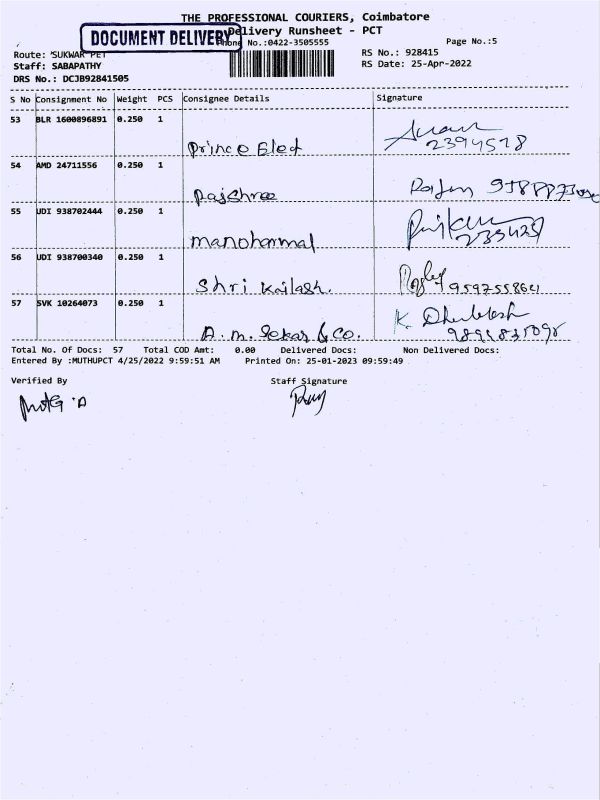 THE PROFESSIONAL COURIERS, Coimbatore
DOCUMENT DELIVERY
Delivery Runsheet - PCT
Phone No.:0422-3505555
Page No.:5
Route: SUKWAR PET
RS No.: 928415
Staff: SABAPATHY
RS Date: 25-Apr-2022
DRS No.: DCJB92841505
S No Consignment No Weight PCS Consignee Details Signature
53 BLR 1600896891 0.250 1
Prince Elect
2394578
54 AMD 24711556 0.250 1
Rajshree
55 UDI 938702444 0.250 1
manoharmal
56 UDI 938700340 0.250 1
Shri Kailash.
57 SVK 10264073 0.250 1
A.m. Sekar & Co.
K.
Total No. Of Docs: 57 Total COD Amt: 0.00 Delivered Docs: Non Delivered Docs:
Entered By :MUTHUPCT 4/25/2022 9:59:51 AM Printed On: 25-01-2023 09:59:49
Verified By Staff Signature